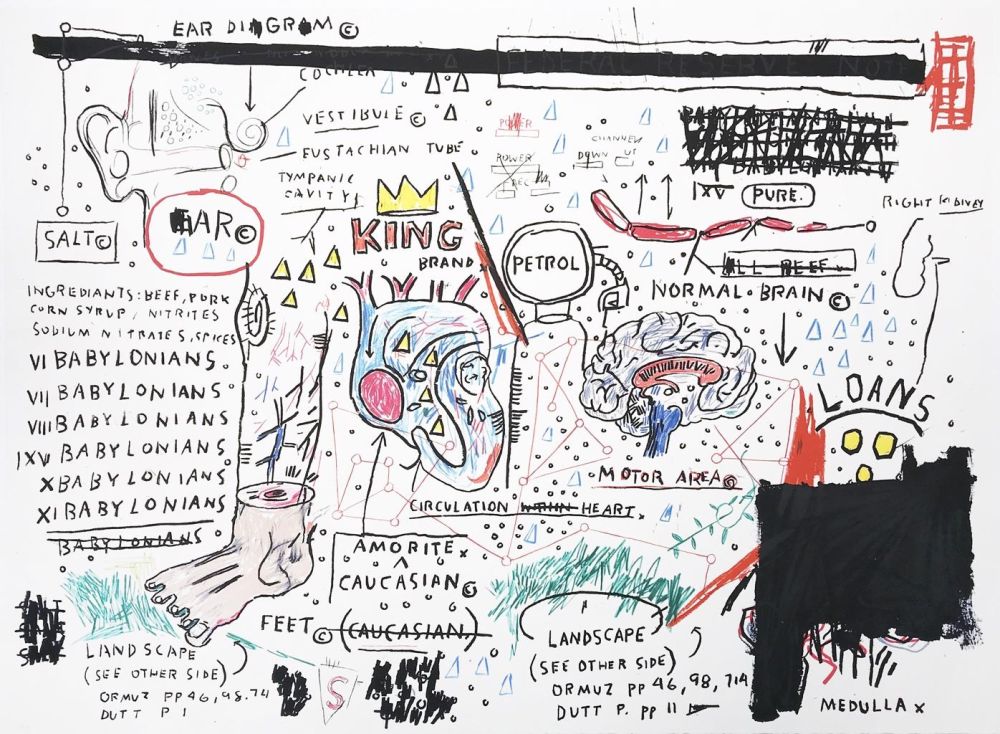 EAR DIAGRAM ©
FEDERAL RESERVE NOTE
COCHLEA
VESTIBULE ©
EUSTACHIAN TUBE
TYMPANIC
CAVITY
POWER
CHANNEL
UT
POWER
DOWN
REC
IXV PURE.
RIGHT KIDNEY
SALT ©
EAR ©
KING
BRAND
PETROL
ALL BEEF
NORMAL BRAIN ©
INGREDIANTS: BEEF, PORK
CORN SYRUP, NITRITES
SODIUM NITRATES, SPICES
VI BABYLONIANS
VII BABYLONIANS
VIII BABYLONIANS
IXV BABYLONIANS
X BABYLONIANS
XI BABYLONIANS
BABYLONIANS
LOANS
MOTOR AREA ©
CIRCULATION WITHIN HEART.
AMORITE x
CAUCASIAN ©
FEET © (CAUCASIAN.)
LANDSCAPE
(SEE OTHER SIDE)
ORMUZ PP 46, 98. 74
DUTT P 1
S
LANDSCAPE
(SEE OTHER SIDE)
ORMUZ PP 46, 98, 714
DUTT P. PP 11
MEDULLA x